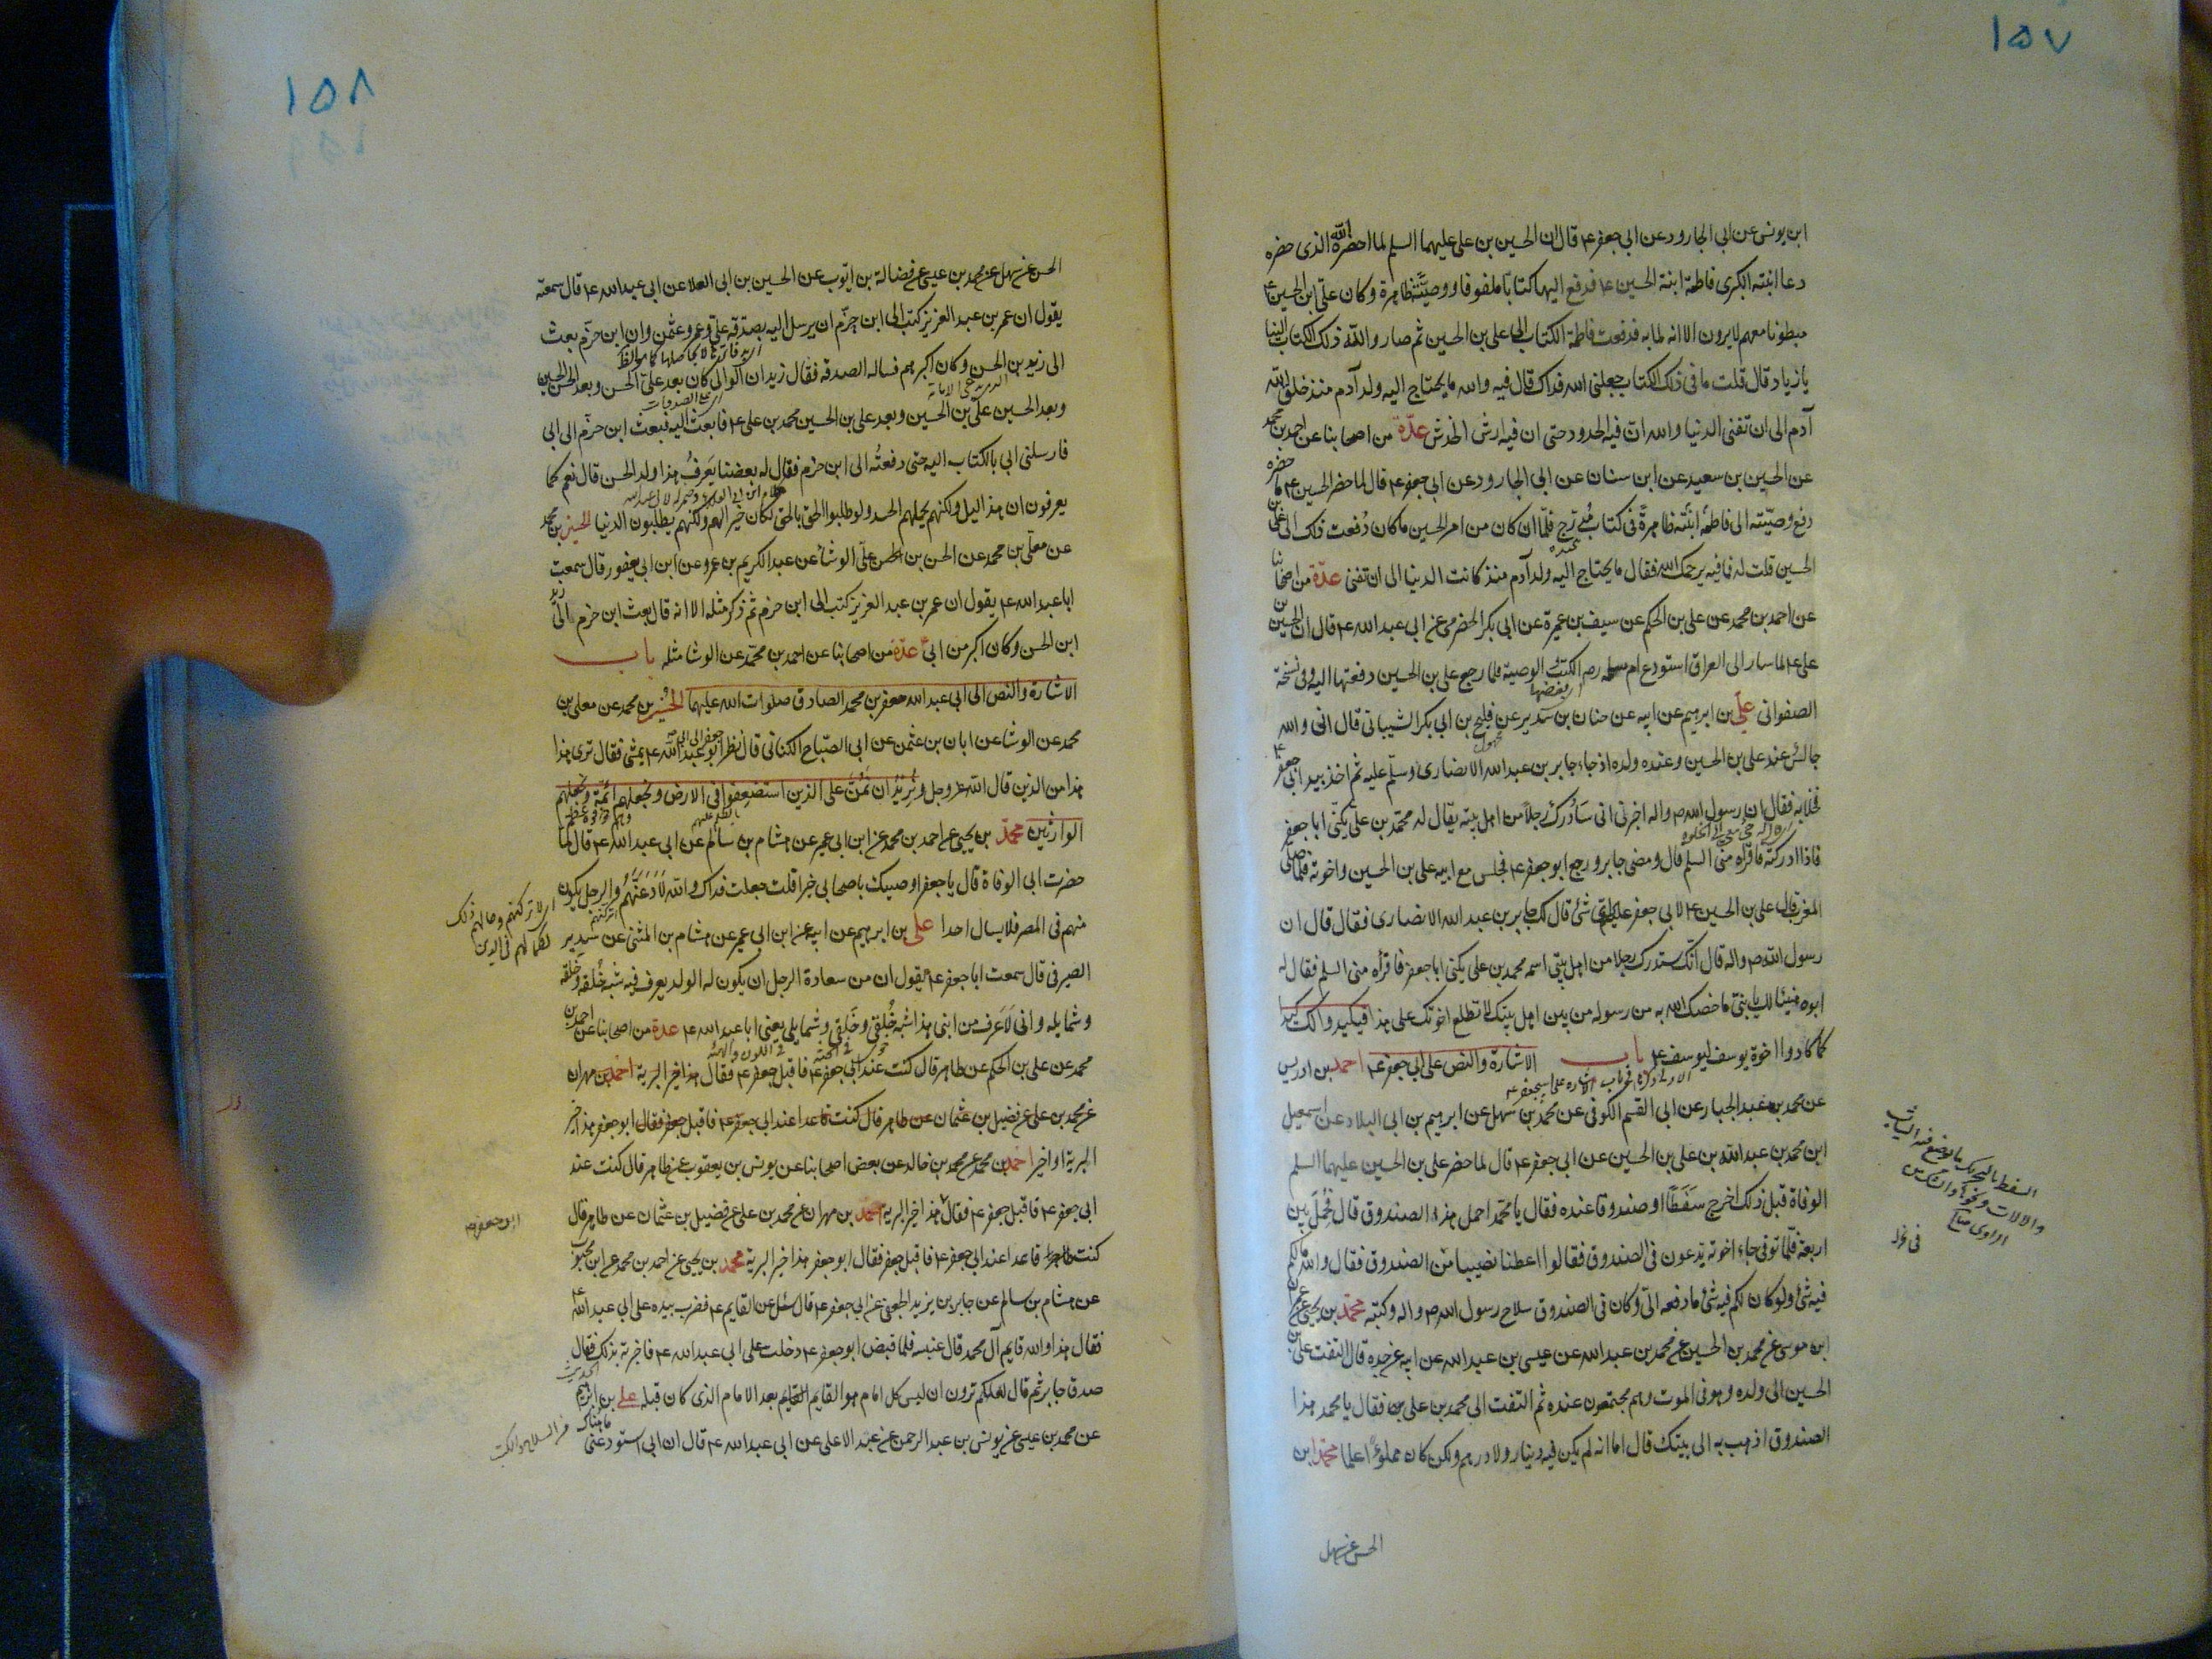 ١٥٧
ابن يونس عن ابى الجارود عن ابى جعفر ع قال ان الحسين بن على عليهما السلم لما احضره الله الذى حضره
دعا ابنته الكبرى فاطمة ابنة الحسين ع فدفع اليها كتابا ملفوفا ووصيّة ظاهرة وكان علىّ ابن الحسين ع
مبطونا معهم لا يرون الا انه لما به فدفعت فاطمة الكتاب الى على بن الحسين ثم صار والله ذلك الكتاب الينا
يا زياد قال قلت ما فى ذلك الكتاب جعلنى الله فداك قال فيه والله ما يحتاج اليه ولد آدم منذ خلق الله
آدم الى ان تفنى الدنيا والله انّ فيه الحدود حتى ان فيه ارش الخدش عدّة من اصحابنا عن احمد بن محمد
عن الحسين بن سعيد عن ابن سنان عن ابى الجارود عن ابى جعفر ع قال لما حضر الحسين ع ما حضره
دفع وصيّته الى فاطمة ابنته ظاهرةً فى كتاب مُدرج فلمّا ان كان من امر الحسين ما كان دُفعت ذلك الى على بن
الحسين قلت له فما فيه يرحمك الله فقال ما يحتاج اليه ولد آدم منذ كانت الدنيا الى ان تفنى عدّة من اصحابنا
عن احمد بن محمد عن على بن الحكم عن سيف بن عميرة عن ابى بكر الحضرمى عن ابى عبد الله ع قال ان الحسين بن
على ع لما سار الى العراق استودع ام سلمه رض الكتب الوصية فلما رجع على بن الحسين دفعتها اليه وفى نسخة
الصفوانى علىّ بن ابرهيم عن ابيه عن حنان بن سَدير عن فليح بن ابى بكر الشيبانى قال انى والله
جالسٌ عند على بن الحسين وعنده ولده اذ جاءه جابر بن عبد الله الانصارى وسلّم عليه ثم اخذ بيد ابى جعفر ع
فخلا به فقال ان رسول الله ص واله اخبرنى انى سأدرك رجلا من اهل بيته يقال له محمّد بن على يكنّى ابا جعفر
فاذا ادركته فاقرأه منى السلم قال ومضى جابر ورجع ابو جعفر ع فجلس مع ابيه على بن الحسين واخوته فلما صلّى
المغرب قال على بن الحسين ع لابى جعفر ع اىّ شئ قال لك جابر بن عبد الله الانصارى فقال قال ان
رسول الله ص واله قال انّك ستدرك رجلا من اهل بيتى اسمه محمد بن على يكنى ابا جعفر فاقرأه منى السلم فقال له
ابوه هنيئا لك يا بنىّ ما خصك الله به من رسوله من بين اهل بيتك لا تطلع اخوتك على هذا فيكيدوا لك كيدا
كما كادوا اخوة يوسف ليوسف ع باب الاشارة والنص على ابى جعفر ع احمد بن ادريس
عن محمد بن عبد الجبار عن ابى القسم الكوفى عن محمد بن سهل عن ابرهيم بن ابى البلاد عن اسمعيل
ابن محمد بن عبد الله بن على بن الحسين عن ابى جعفر ع قال لما حضر على بن الحسين عليهما السلم
الوفاة قبل ذلك اخرج سَفَطًا او صندوقا عنده فقال يا محمّد احمل هذا الصندوق قال فحُمِل بين
اربعة فلمّا توفى جاء اخوته يدعون فى الصندوق فقالوا اعطنا نصيبا من الصندوق فقال والله ما لكم
فيه شئ ولو كان لكم فيه شئ ما دفعه الىّ وكان فى الصندوق سلاح رسول الله ص واله وكتبه محمّد بن يحيى عن عمران
ابن موسى عن محمد بن الحسين عن محمد بن عبد الله عن عيسى بن عبد الله عن ابيه عن جده قال التفت على بن
الحسين الى ولده وهو فى الموت وهم مجتمعون عنده ثم التفت الى محمد بن على بن فقال يا محمد هذا
الصندوق اذهب به الى بيتك قال اما انه لم يكن فيه دينار ولا درهم ولكن كان مملوءًا علما محمّد ابن
السفط بالتحريك ما يوضع فيه الثياب
الحسن عن سهل
١٥٨
الحسن عن سهل عن محمد بن عيسى عن فضالة بن ايّوب عن الحسين بن ابى العلا عن ابى عبد الله ع قال سمعته
يقول ان عمر بن عبد العزيز كتب الى ابن حزم ان يرسل اليه بصدقة علىّ وعمر وعثمن وان ابن حزم بعث
الى زيد بن الحسن وكان اكبرهم فساله الصدقة فقال زيد ان الوالى كان بعد علىّ الحسن وبعد الحسن الحسين
وبعد الحسين علىّ بن الحسين وبعد على بن الحسين محمد بن على ع فابعث اليه فبعث ابن حزم الى ابى
فارسلنى ابى بالكتاب اليه حتى دفعتُه الى ابن حزم فقال له بعضنا يَعرفُ هذا ولد الحسن قال نعم كما
يعرفون ان هذا ليل ولكنهم يحملهم الحسد ولو طلبوا الحق بالحق لكان خيرا لهم ولكنهم يطلبون الدنيا الحسين بن محمد
عن معلّى بن محمد عن الحسن بن على الوشاء عن عبد الكريم بن عمرو عن ابن ابى يعفور قال سمعت
ابا عبد الله ع يقول ان عمر بن عبد العزيز كتب الى ابن حزم ثم ذكر مثله الا انه قال بعث ابن حزم الى زيد
ابن الحسن وكان اكبر من ابى عدّة من اصحابنا عن احمد بن محمّد عن الوشا مثله باب
الاشارة والنص الى ابى عبد الله جعفر بن محمد الصادق صلوات الله عليهما الحسين بن محمد عن معلى بن
محمد عن الوشا عن ابان بن عثمن عن ابى الصبّاح الكنانى قال نظر ابو جعفر الى ابى عبد الله ع يمشى فقال ترى هذا
هذا من الذين قال الله عز وجل ونُريدُ ان نَمُنّ على الذين استُضعِفوا فى الارض ونجعلهم ائمّة ونجعلهم
الوارثين محمّد بن يحيى عن احمد بن محمد عن ابن ابى عمير عن هشام بن سالم عن ابى عبد الله ع قال لما
حضرت ابى الوفاة قال يا جعفر اوصيك باصحابى خيرا قلت جعلت فداك والله لَاَدَعَنَّهُم والرجل يكون
منهم فى المصر فلا يسال احدا على بن ابرهيم عن ابيه عن ابن ابى عمير عن هشام بن المثنى عن سدير
الصيرفى قال سمعت ابا جعفر ع يقول ان من سعادة الرجل ان يكون له الولد يعرف فيه شبه خُلقه وخَلقه
وشمايله وانى لَاَعرف من ابنى هذا شبه خُلقى وخَلقى وشمايلى يعنى ابا عبد الله ع عدة من اصحابنا عن احمد بن
محمد عن على بن الحكم عن طاهر قال كنت عند ابى جعفر ع فاقبل جعفر ع فقال هذا خير البرية احمد بن مهران
عن محمد بن على عن فضيل بن عثمان عن طاهر قال كنت قاعدا عند ابى جعفر ع فاقبل جعفر فقال ابو جعفر هذا خير
البرية او اخير احمد بن محمد عن محمد بن خالد عن بعض اصحابنا عن يونس بن يعقوب عن طاهر قال كنت عند
ابى جعفر ع فاقبل جعفر ع فقال هذا خير البرية احمد بن مهران عن محمد بن على عن فضيل بن عثمان عن طاهر قال
كنت قاعدا عند ابى جعفر ع فاقبل جعفر فقال ابو جعفر هذا خير البرية محمد بن يحيى عن احمد بن محمد عن ابن محبوب
عن هشام بن سالم عن جابر بن يزيد الجعفى عن ابى جعفر ع قال سئل عن القايم ع فضرب بيده على ابى عبد الله ع
فقال هذا والله قايم آل محمد قال عنبسه فلما قبض ابو جعفر ع دخلت على ابى عبد الله ع فاخبرته بذلك فقال
صدق جابر ثم قال لعلكم ترون ان ليس كل امام هو القايم بعد الامام الذى كان قبله على بن ابرهيم
عن محمد بن عيسى عن يونس بن عبد الرحمن عن عبد الاعلى عن ابى عبد الله ع قال ان ابى استودعنى ما هناك